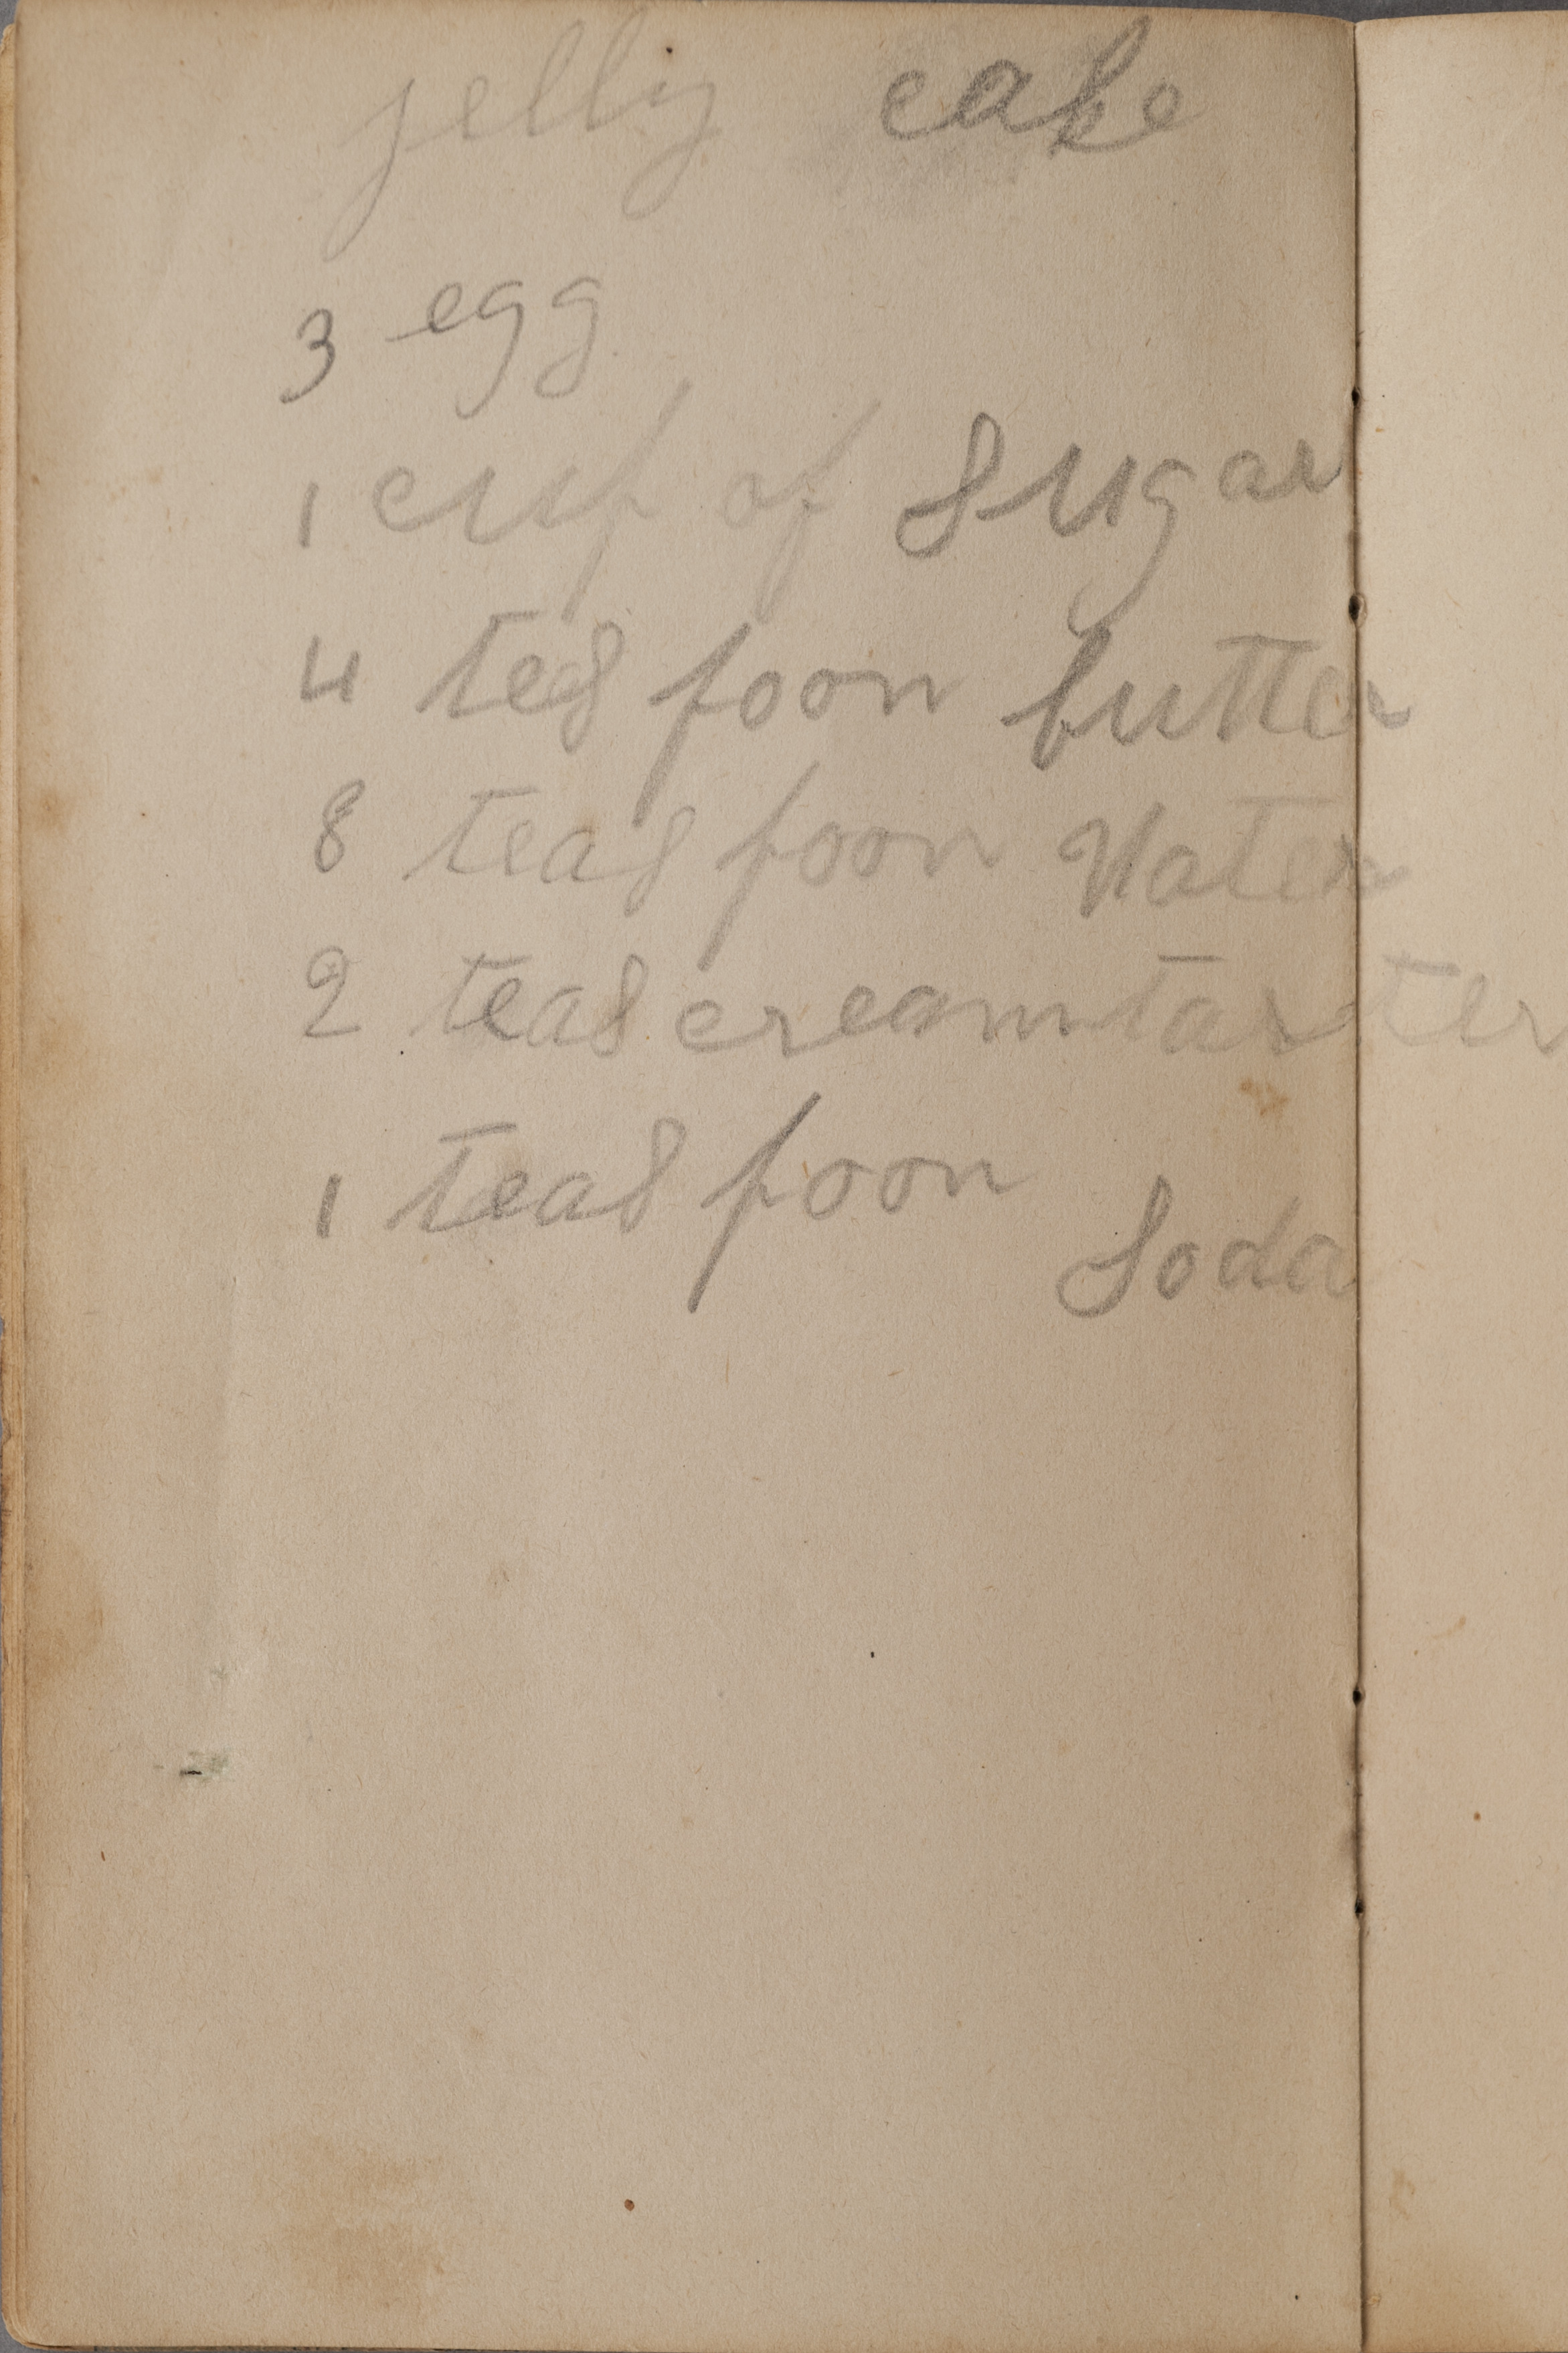 jelly cake
3 egg
1 cup of Sugar
4 tea spoon butter
8 teaspoon Water
2 teas creamtarter
1 teaspoon Soda